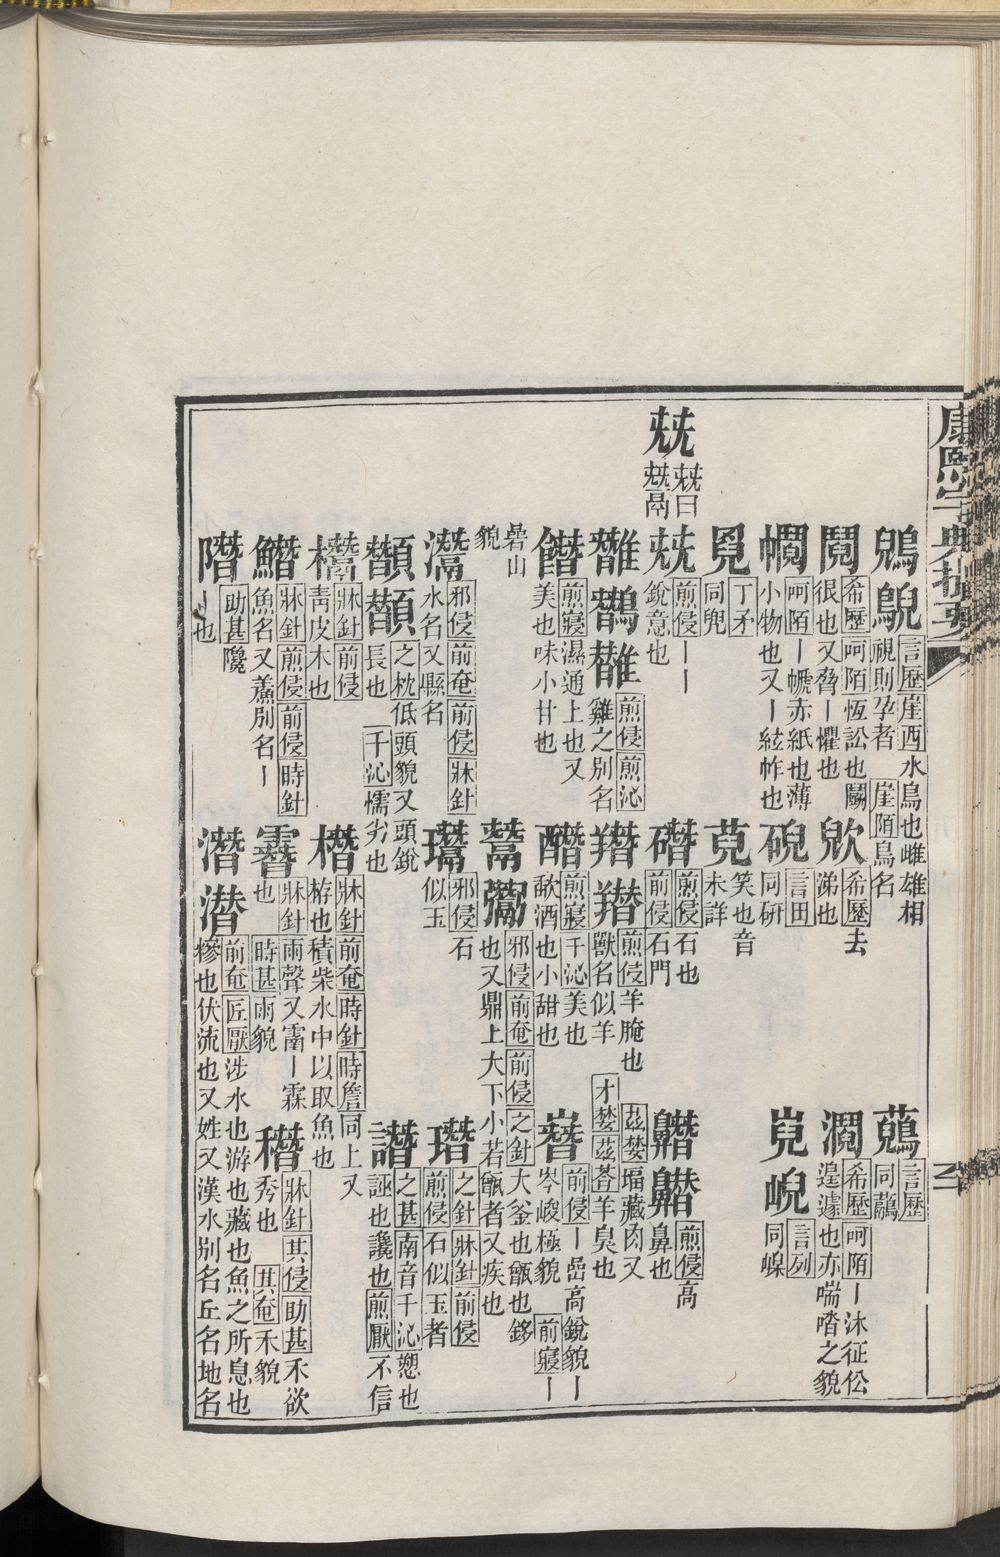 康熙字典撮要
鶂鶃 言歷 崖酉 水鳥也雌雄相視則孕者 崖陌 鳥名
鷊 言歷 同鷊
鬩 希歷 呵陌 恆訟也鬭很也又脅丨懼也
欥 希歷 去涕也
瀾 希歷 呵陌 丨沐征伀遑遽也亦喘喀之貌
幗 呵陌 丨蹏赤紙也薄小物也又丨絃帓也
硯 言田 同硏
覓 丁矛 同兜
莧 笑也音未詳
峴 言列 同嵲
兓 兓曰 兓鬲
兓 煎侵 丨丨銳意也
礸 煎侵 石也 前侵 石門
煎侵 高鼻也
煎侵 煎沁 雞之別名
煎侵 羊腌也獸名似羊
茲婪 㙏藏肉又 才婪 茲荅 羊臭也
煎寑 濕通上也又美也味小甘也
醋 煎寑 千沁 美也歃酒也小甜也
前侵 丨嵒高銳貌丨岑峻極貌 前寑 丨礨山貌
鬵 邪侵 前奄 前侵 之針 大釜也甑也鉹也又鼎上大下小若甑者又疾也
灊 邪侵 前奄 前侵 牀針 水名又縣名
邪侵 石似玉
之針 牀針 前侵 煎侵 石似玉者
之枕 低頭貌又頭銳長也 千沁 懦劣也
譖 之甚 南音 千沁 愬也誣也讒也 煎厭 不信
牀針 前侵 靑皮木也
橬 牀針 前奄 時針 時詹 同上又栫也積柴水中以取魚也
鱏 牀針 煎侵 前侵 時針 魚名又鮺別名丨也
牀針 雨聲又霤丨霖 時甚 雨貌
牀針 其侵 助甚 禾欲秀也 其奄 禾貌
助甚 隵丨也
潛潜 前奄 匠厭 涉水也游也藏也魚之所息也槮也伏流也又姓又漢水別名丘名地名